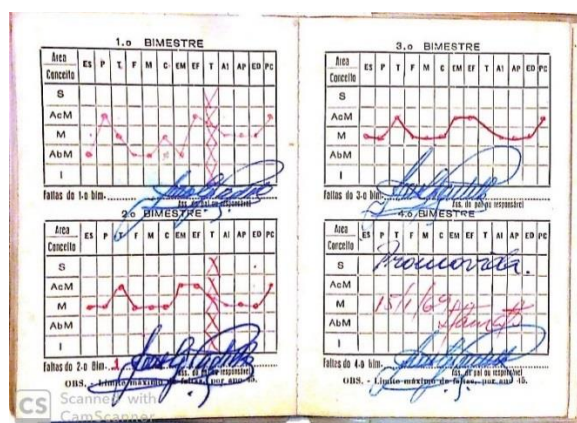 1.o BIMESTRE
Área Conceito ES P T. F M C EM EF T A1 AP ED PC
S
AcM
M
AbM
I
Faltas do 1-o bim-
Ass. do pai ou responsável
2o BIMESTRE
Área Conceito ES P T. F M C EM EF T A1 AP ED PC
S
AcM
M
AbM
I
Faltas do 2-o Bim- 1
Ass. do pai ou responsável
OBS. - Limite máximo de faltas, por ano 45.
CS Scanned with CamScanner
3.o BIMESTRE
Área Conceito ES P T F M C EM EF T A1 AP ED PC
S
AcM
M
AbM
I
Faltas do 3-o bim-
Ass. do pai ou responsável
4.o BIMESTRE
Área Conceito ES P T F M C EM EF T A1 AP ED PC
S Promovida.
AcM
M 15/1/69
AbM
I
Faltas do 4-o bim-
Ass. do pai ou responsável
OBS. - Limite máximo de faltas, por ano 45.